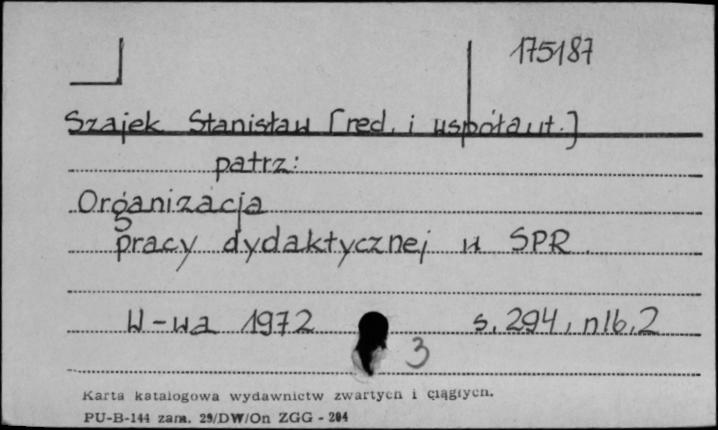 175187
Szajek Stanisław [red. i współaut.]
patrz:
Organizacja
pracy dydaktycznej w SPR
W-wa 1972 s. 294, nlb. 2
3
Karta katalogowa wydawnictw zwartych i ciągłych.
PU-B-144 zam. 29/DW/On ZGG - 294